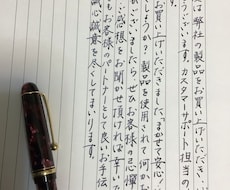 は弊社の製品をお買い上げいただい
うございます。カスタマーサポート担当の
お買い上げいただきました、まかせて安心
しょうか？製品を使用されて何かお
ございましたら、ぜひお客様の忌憚
ご感想をお聞かせ頂ければ幸い
もお客様のパートナーとして良いお手伝
誠心誠意を尽くしてまいります。